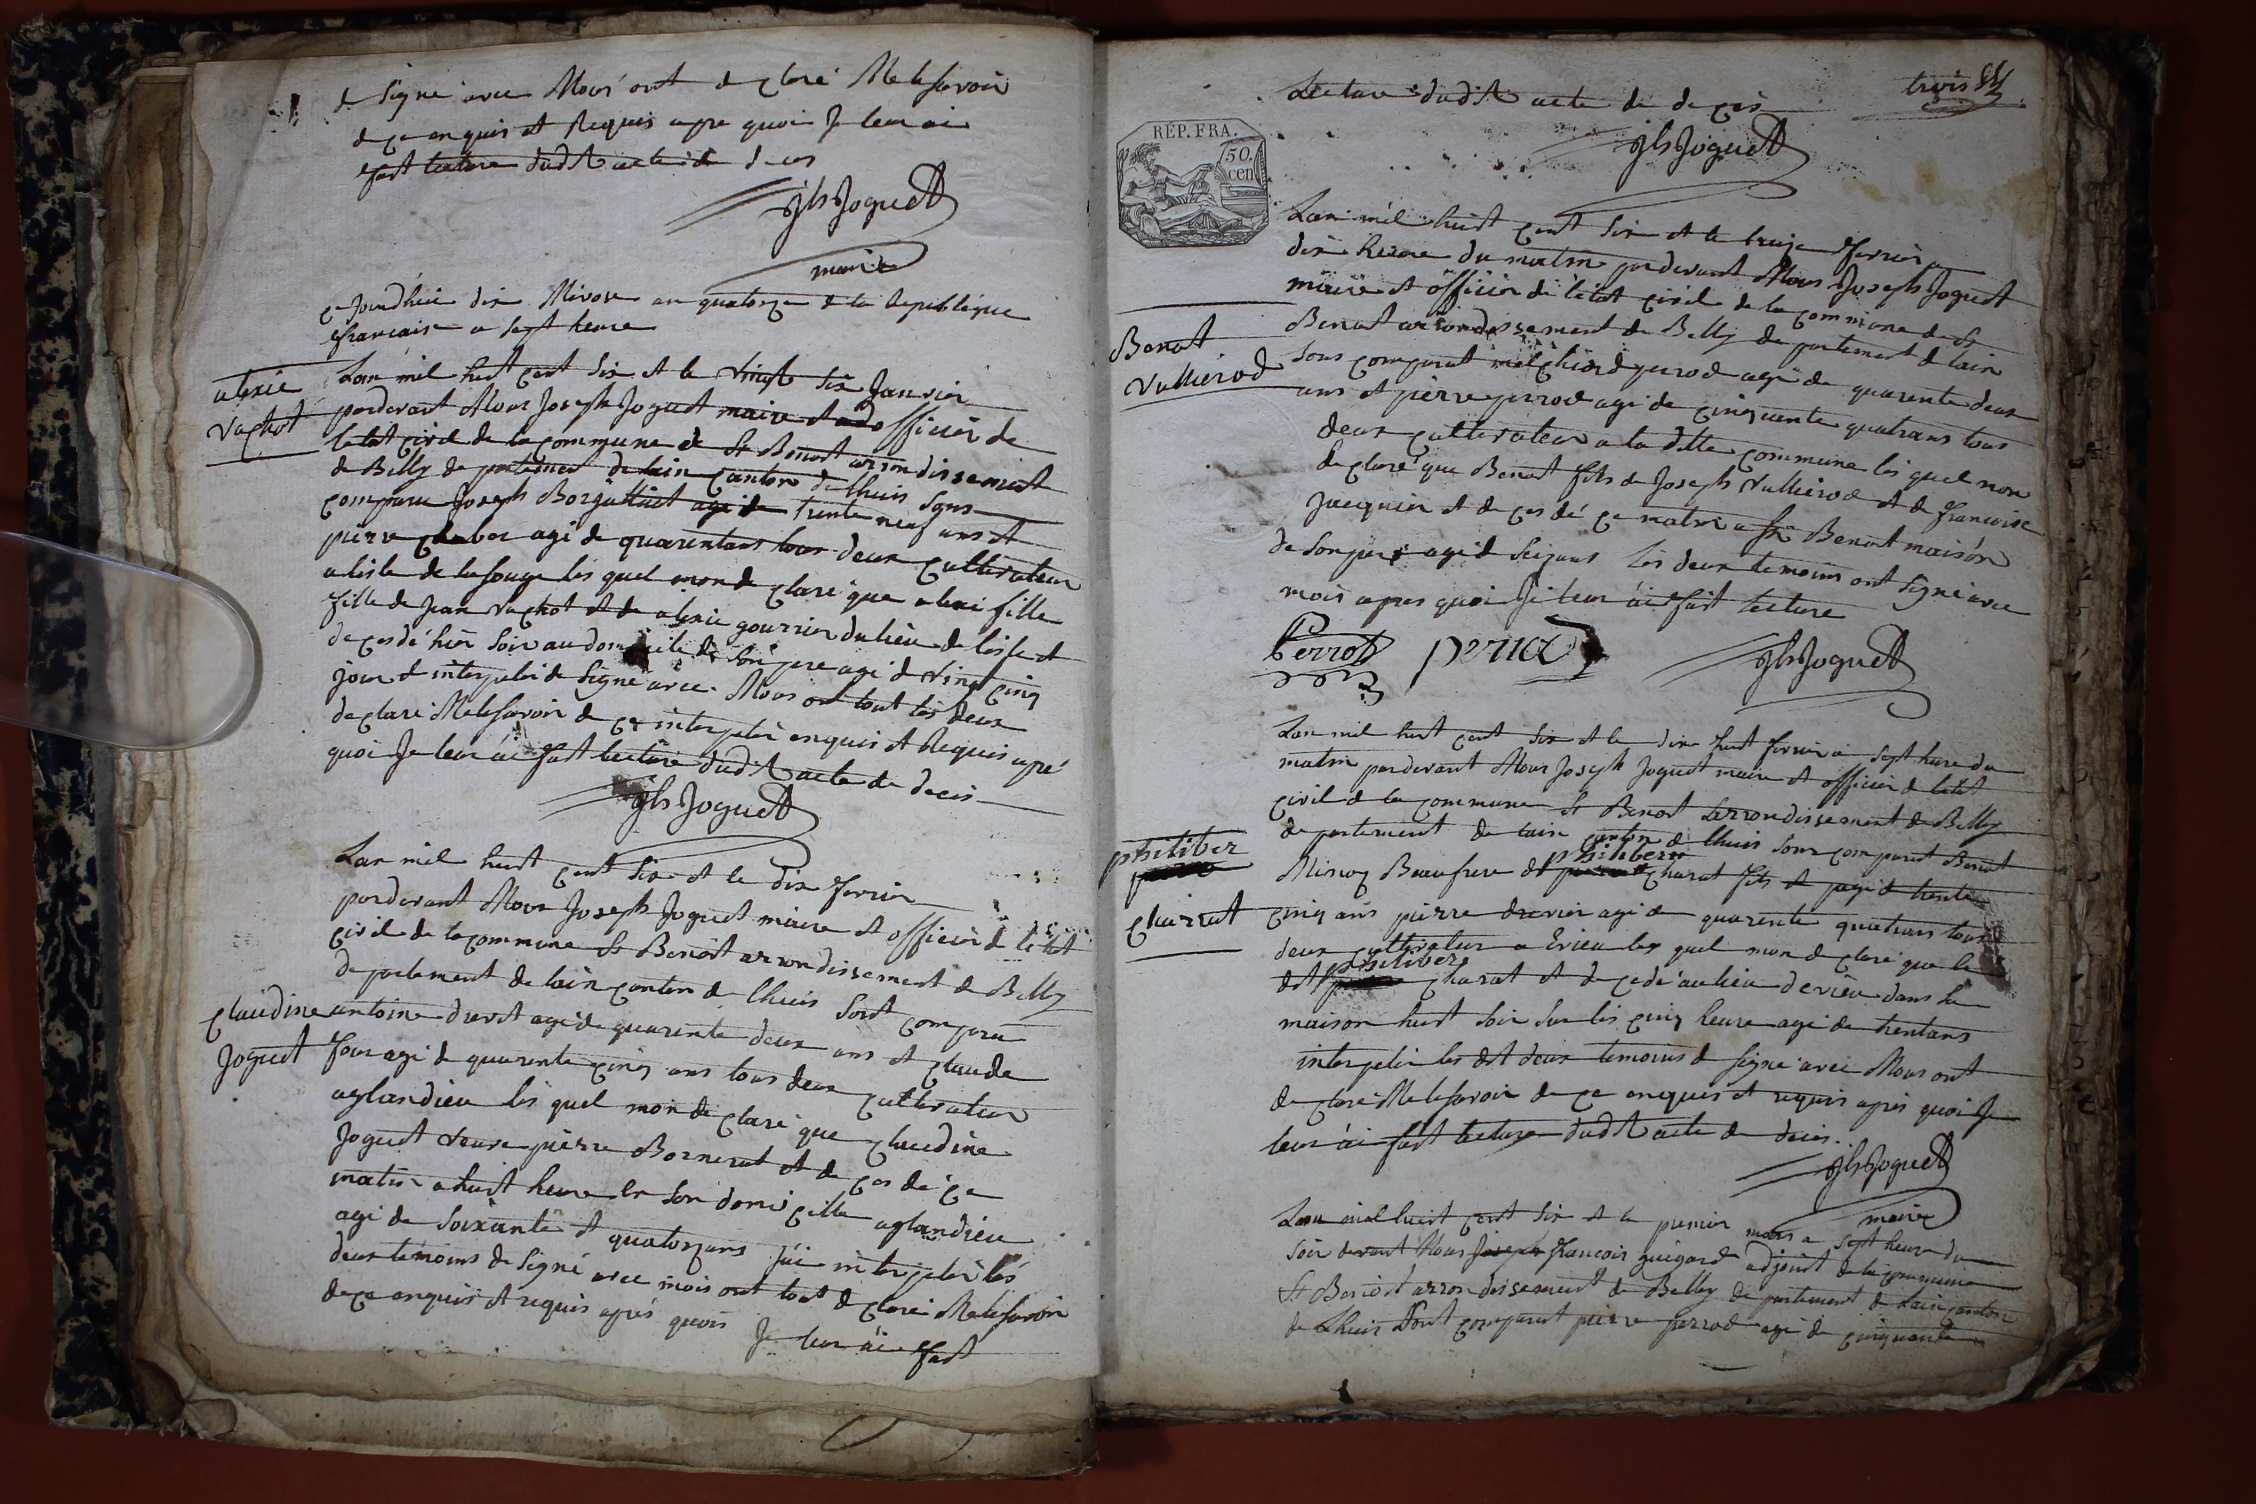 de signé avec Nous ont de claré Ne le savoir
de ce enquis et Requis apre quoi Je leur ai
fait lecture dudit acte de deces
Jh Joguet
maire
ce Jourdhui dix Nivose an quatorze de la Republique
francaise a sept heure
alexie
vachot
Lan mil huit cent six et le vingt six Janvier
pardevant Nous Joseph Joguet maire et officier de
letat civil de la commune de St Benoit arrondissement
de Belly departement de lain canton de lhuis sons
comparu Joseph Borjallliet agé de trente neuf ans et
pierre agé de quarentans tous deux cultivateur
a lisle de les quel mon de claré que alexi fille
fille de Jean vachot et de alexie gourrier du lieu de lisle et
de cesdé hier soir au domicile de son pere agé de vingt cinq
jour et interpelé de signé avec Nous on tout les deux
de claré Ne le savoir de ce interpelér enquis et Requis apré
quoi Je leur ai fait lecture dudit acte de deces
Jh Joguet
Lan mil huit cent six et le dix fevrier
pardevant Nous Joseph Joguet maire et officier de letat
civil de la commune St Benoit arrondissement de Belly
departement de lain canton de lhuis sont comparu
claudine
Joguet
antoine drevet agé de quarente deux ans et claude
four agé de quarente cinq ans tous deux cultivateur
aglandieu les quel mon de claré que claudine
Joguet veuve pierre Bornerat et de ces dé ce
matin a huit heure en son domicille aglandieu
agé de soixante et quatorzans J'ai interpelér les
deux temoins de signé avec mois ont tout de claré Ne le savoir
de ce enquis et requis aprés quois Je leur ai fait
trois
Lecture dudit acte de de ces
Jh Joguet
REP. FRA.
50.
cen
Lan mil huit cent six et le treize fevrier a
dix heure du matin pardevant Nous Joseph Joguet
maire et officier de létat civil de la commune de St
Benoit
vullierod
Benoit arrondissement de Belly departement de lain
sons comparut melchiord perrod agé de quarente deux
ans et pierre perrod agé de cinquante quatrans tous
deux cultivateur a la ditte commune les quel mon
de claré que Benoit fils de Joseph vullierod et de francoise
Jacquier et de ces dé ce matin a St Benoit maison
de son pere agé de seizans les deux temoins ont signé avec
mois apres quoi Je leur ai fait lecture
Perrod perrod
Jh Joguet
Lan mil huit cent six et le dix huit fevrier a sept heure du
matin pardevant Nous Joseph Joguet maire et officier de letat
civil de la commune St Benoit arrondissement de Belly
departement de lain canton de lhuis sons comparut Benoit
philiber
clairrat
philibert
Beaufrere de charat fils et agé de trente
cinq ans pierre drevier agé de quarente quatrans tous
deux cultivateur a Evieu les quel mon de claré que le
philibert
dit charat et de cedé au lieu d'evieu dans sa
maison hiert soir sur les cinq heure agé de trentans
interpelér les dit deux temoins de signé avec Nous ont
de claré Ne le savoir de ce enquis et requis aprés quoi Je
leur ai fait lecture dudit acte de deces.
Jh Joguet
maire
Lan mil huit cent six et le premier mars a sept heure du
soir devant Nous francois guigard adjoint de la commune
St Benoit arrondissement de Belley departement de Lain canton
de Lhuis sont comparut pierre perrod agé de cinquante